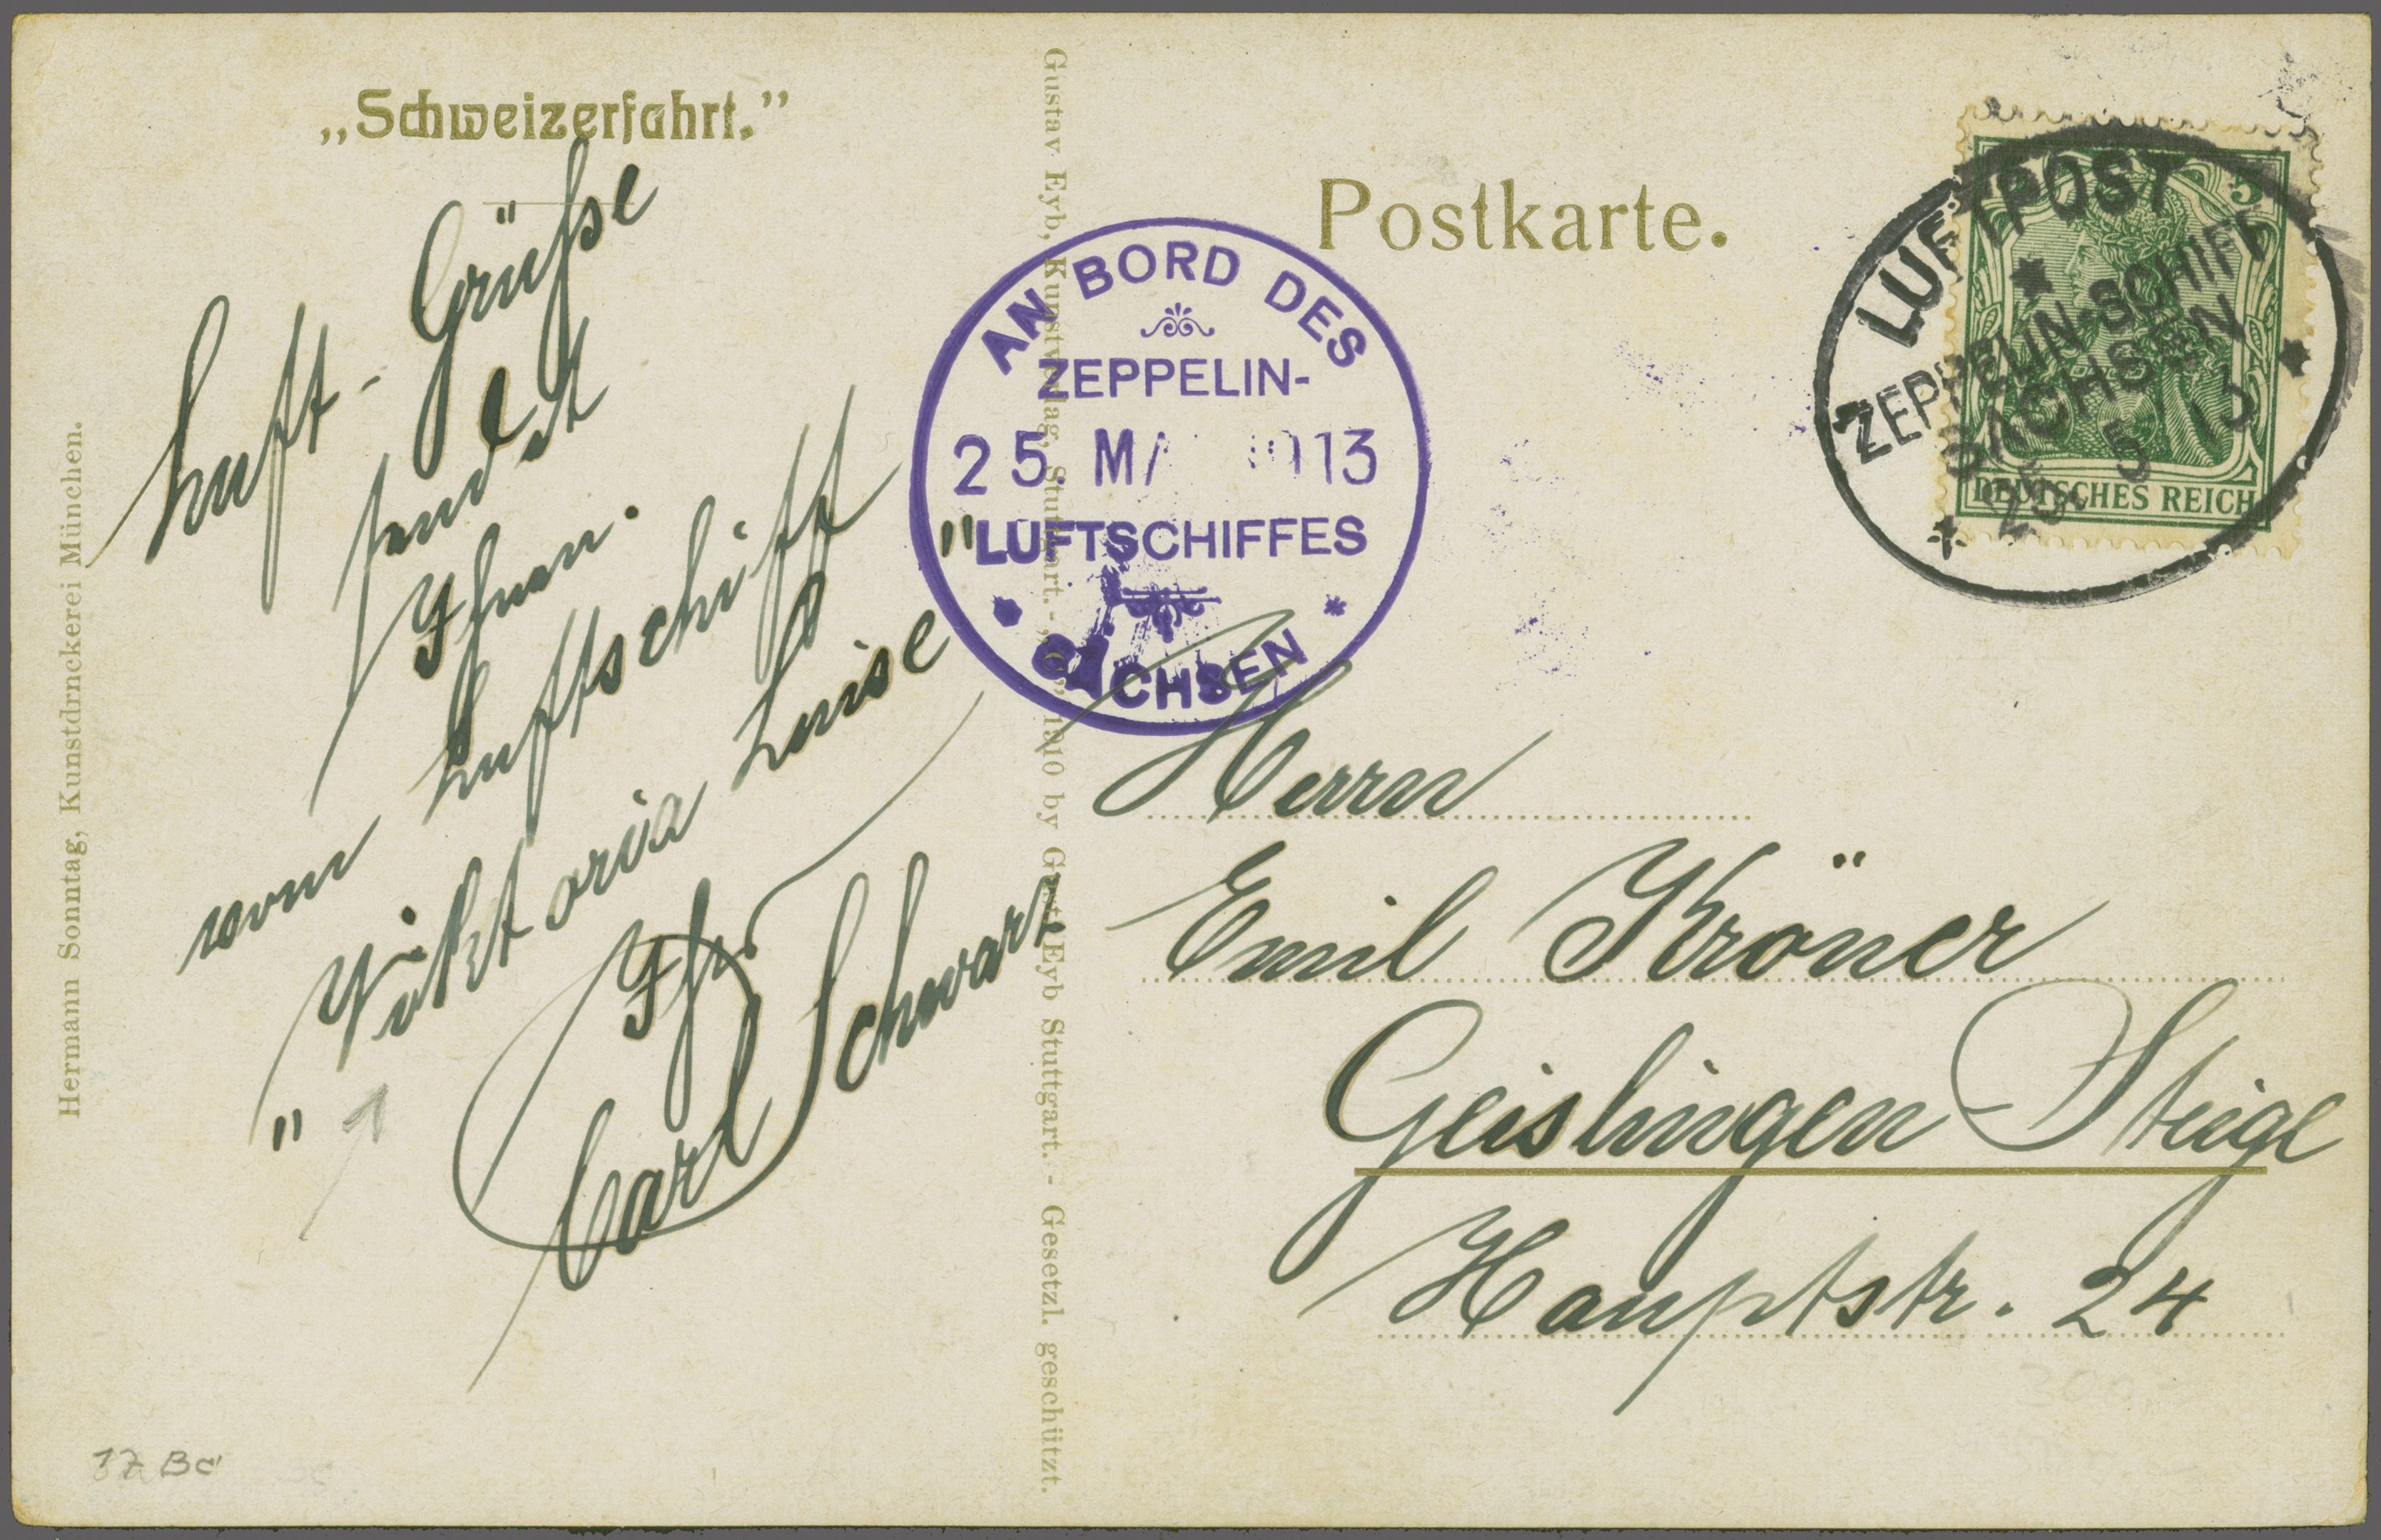 „Schweizerfahrt.”
Luft-Grüße
sendet
Ihnen.
vom Luftschiff
"Viktoria Luise"
Ihr
Carl Schwarz
Hermann Sonntag, Kunstdrnckerei München.
Gustav Eyb, Kunstverlag, Stuttgart. - 1910 by Gust. Eyb Stuttgart. - Gesetzl. geschützt.
AN BORD DES
ZEPPELIN-
25. MA 1913
LUFTSCHIFFES
SACHSEN
Postkarte.
LUFTPOST
ZEPPELIN-SCHIFF
SACHSEN
25. 5 13
5
DEUTSCHES REICH
Herrn
Emil Kröner
Geislingen Steige
Hauptstr. 24